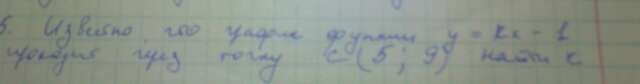 5. Известно, что график функции y = kx - 1
проходит через точку C (5; 9) найти k